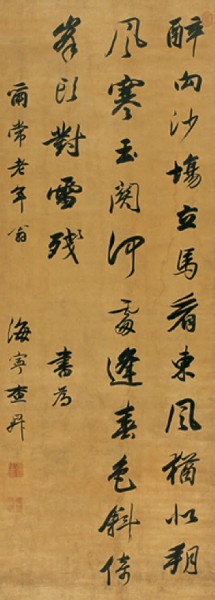 醉向沙場立馬看東風猶似朔
風寒玉関何處逢春色斜倚
峯頭對雪殘 書為
爾常老年翁 海寧查昇